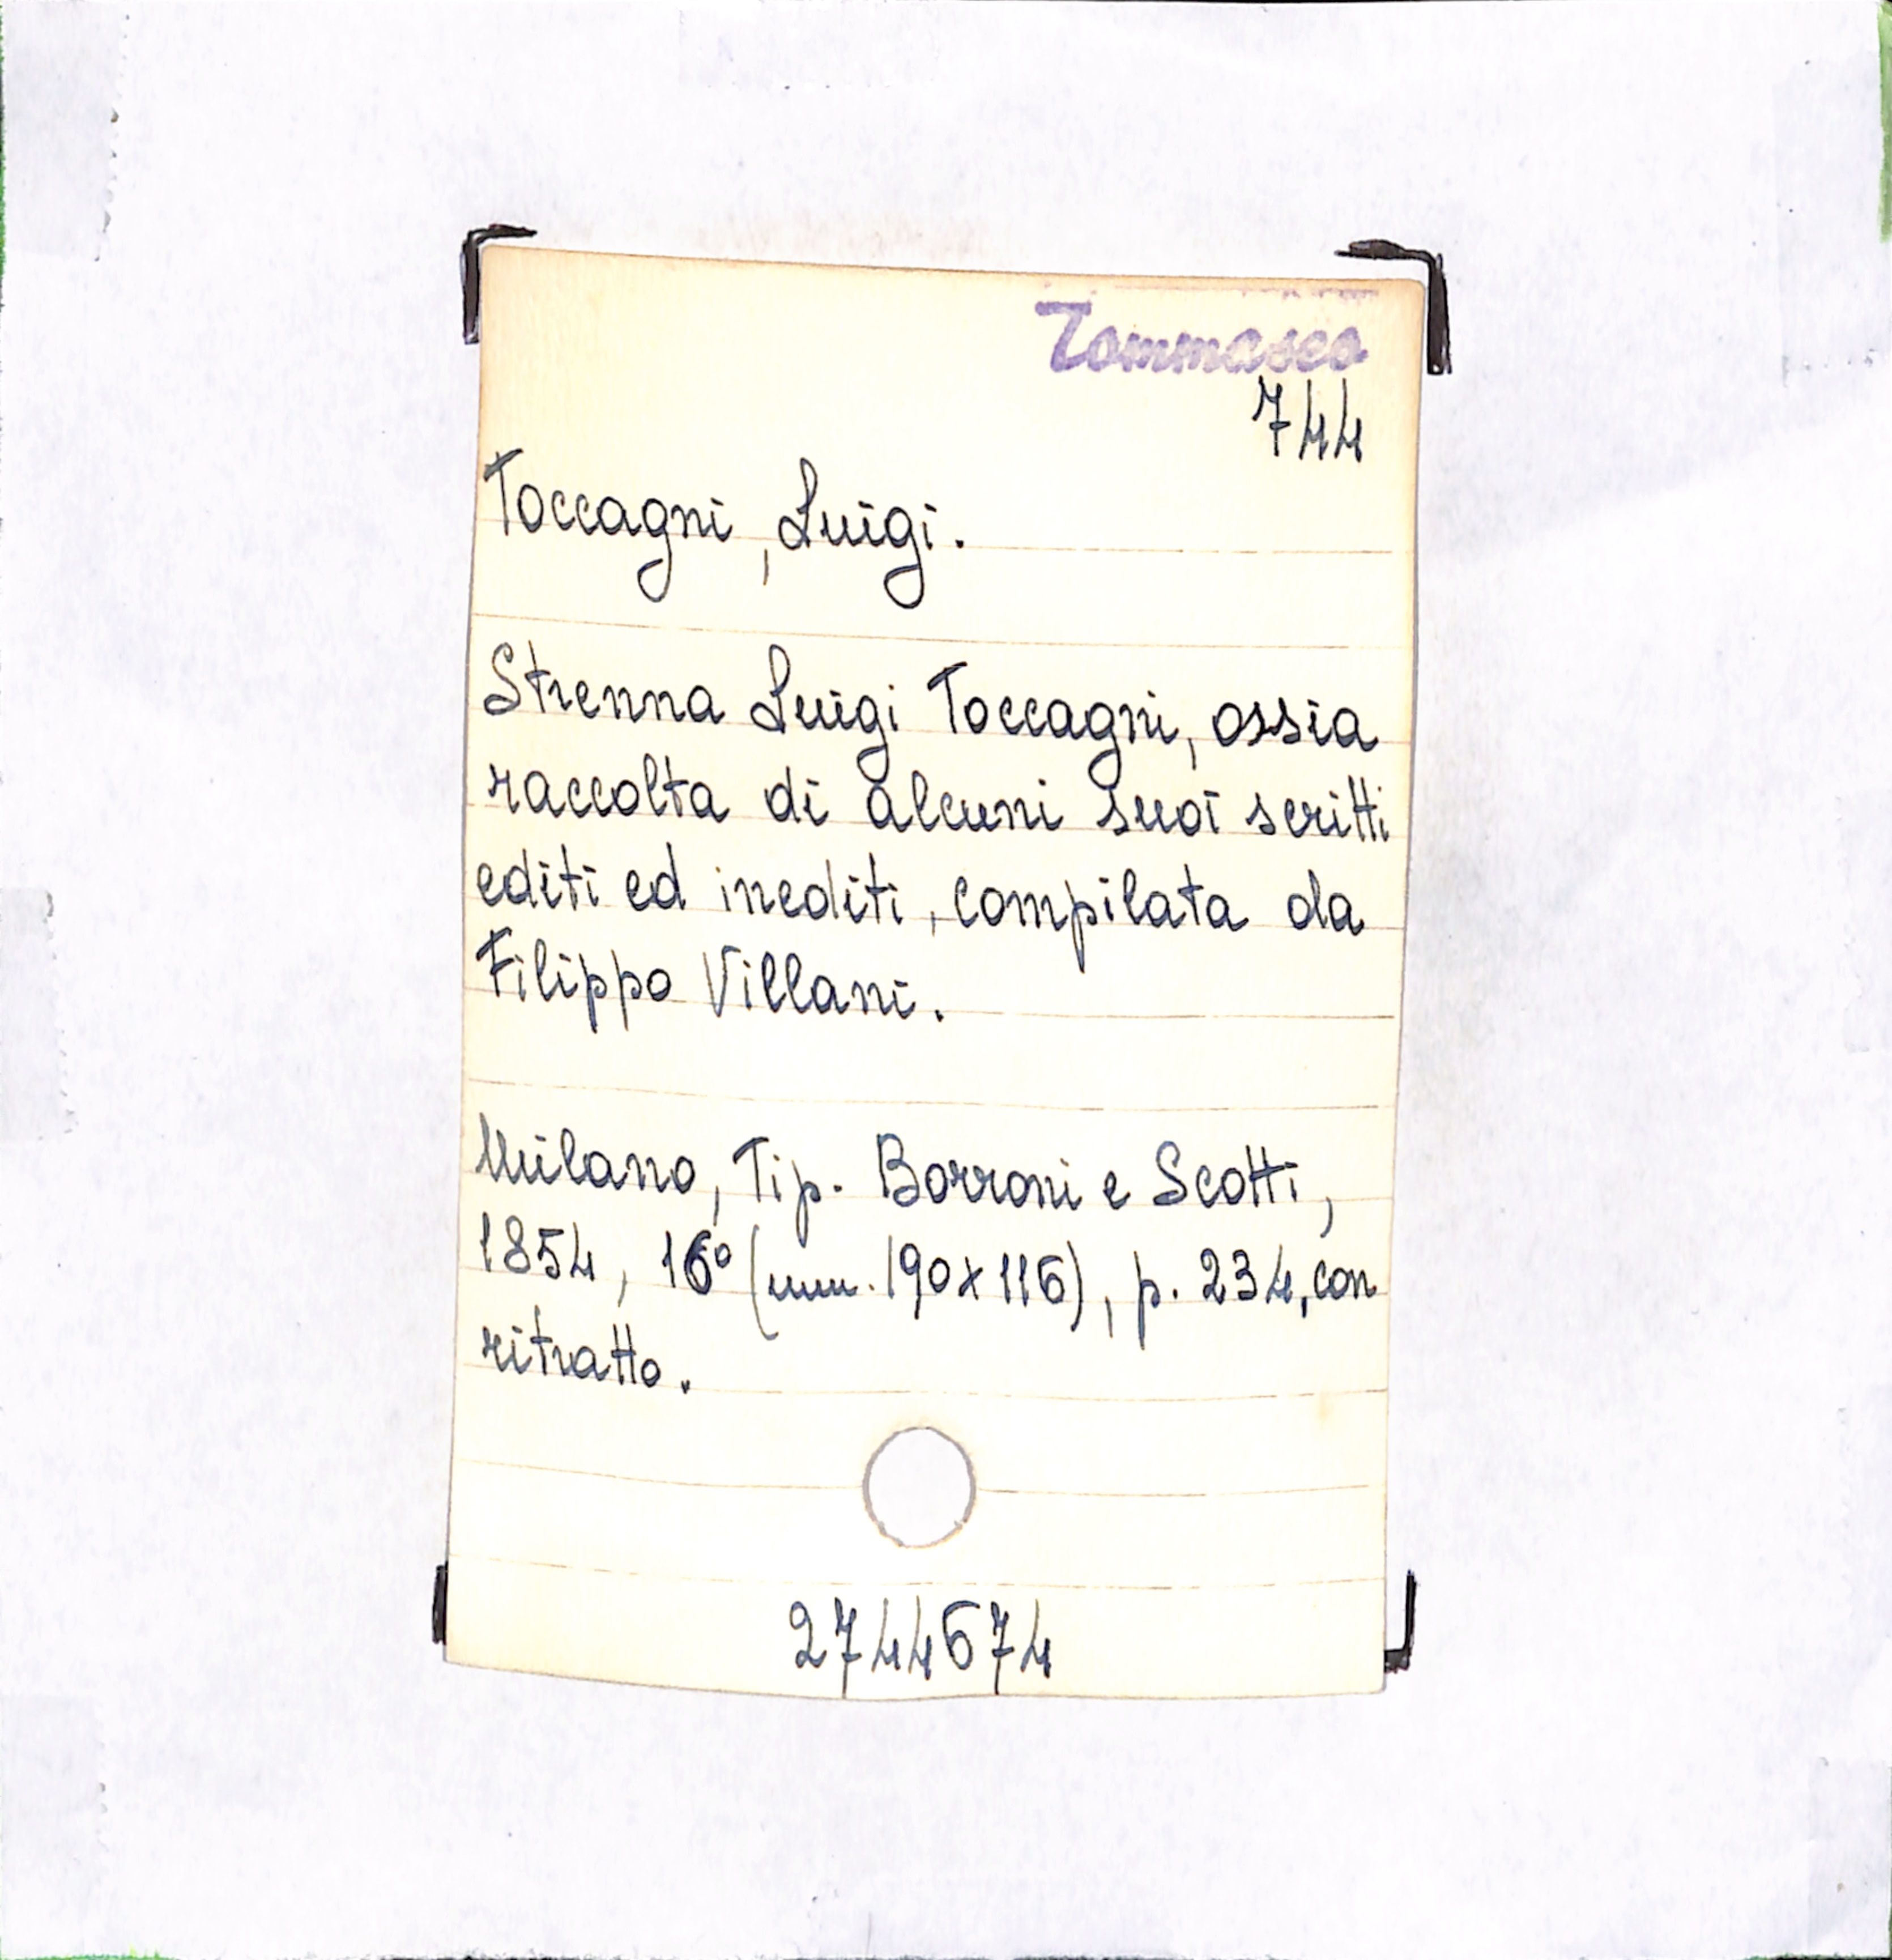 Tommaseo
744
Toccagni, Luigi.
Strenna Luigi Toccagni, ossia
raccolta di alcuni suoi scritti
editi ed inediti, compilata da
Filippo Villani.
Milano, Tip. Borroni e Scotti,
1854, 16° (mm. 190x116), p. 234, con
ritratto.
2744674